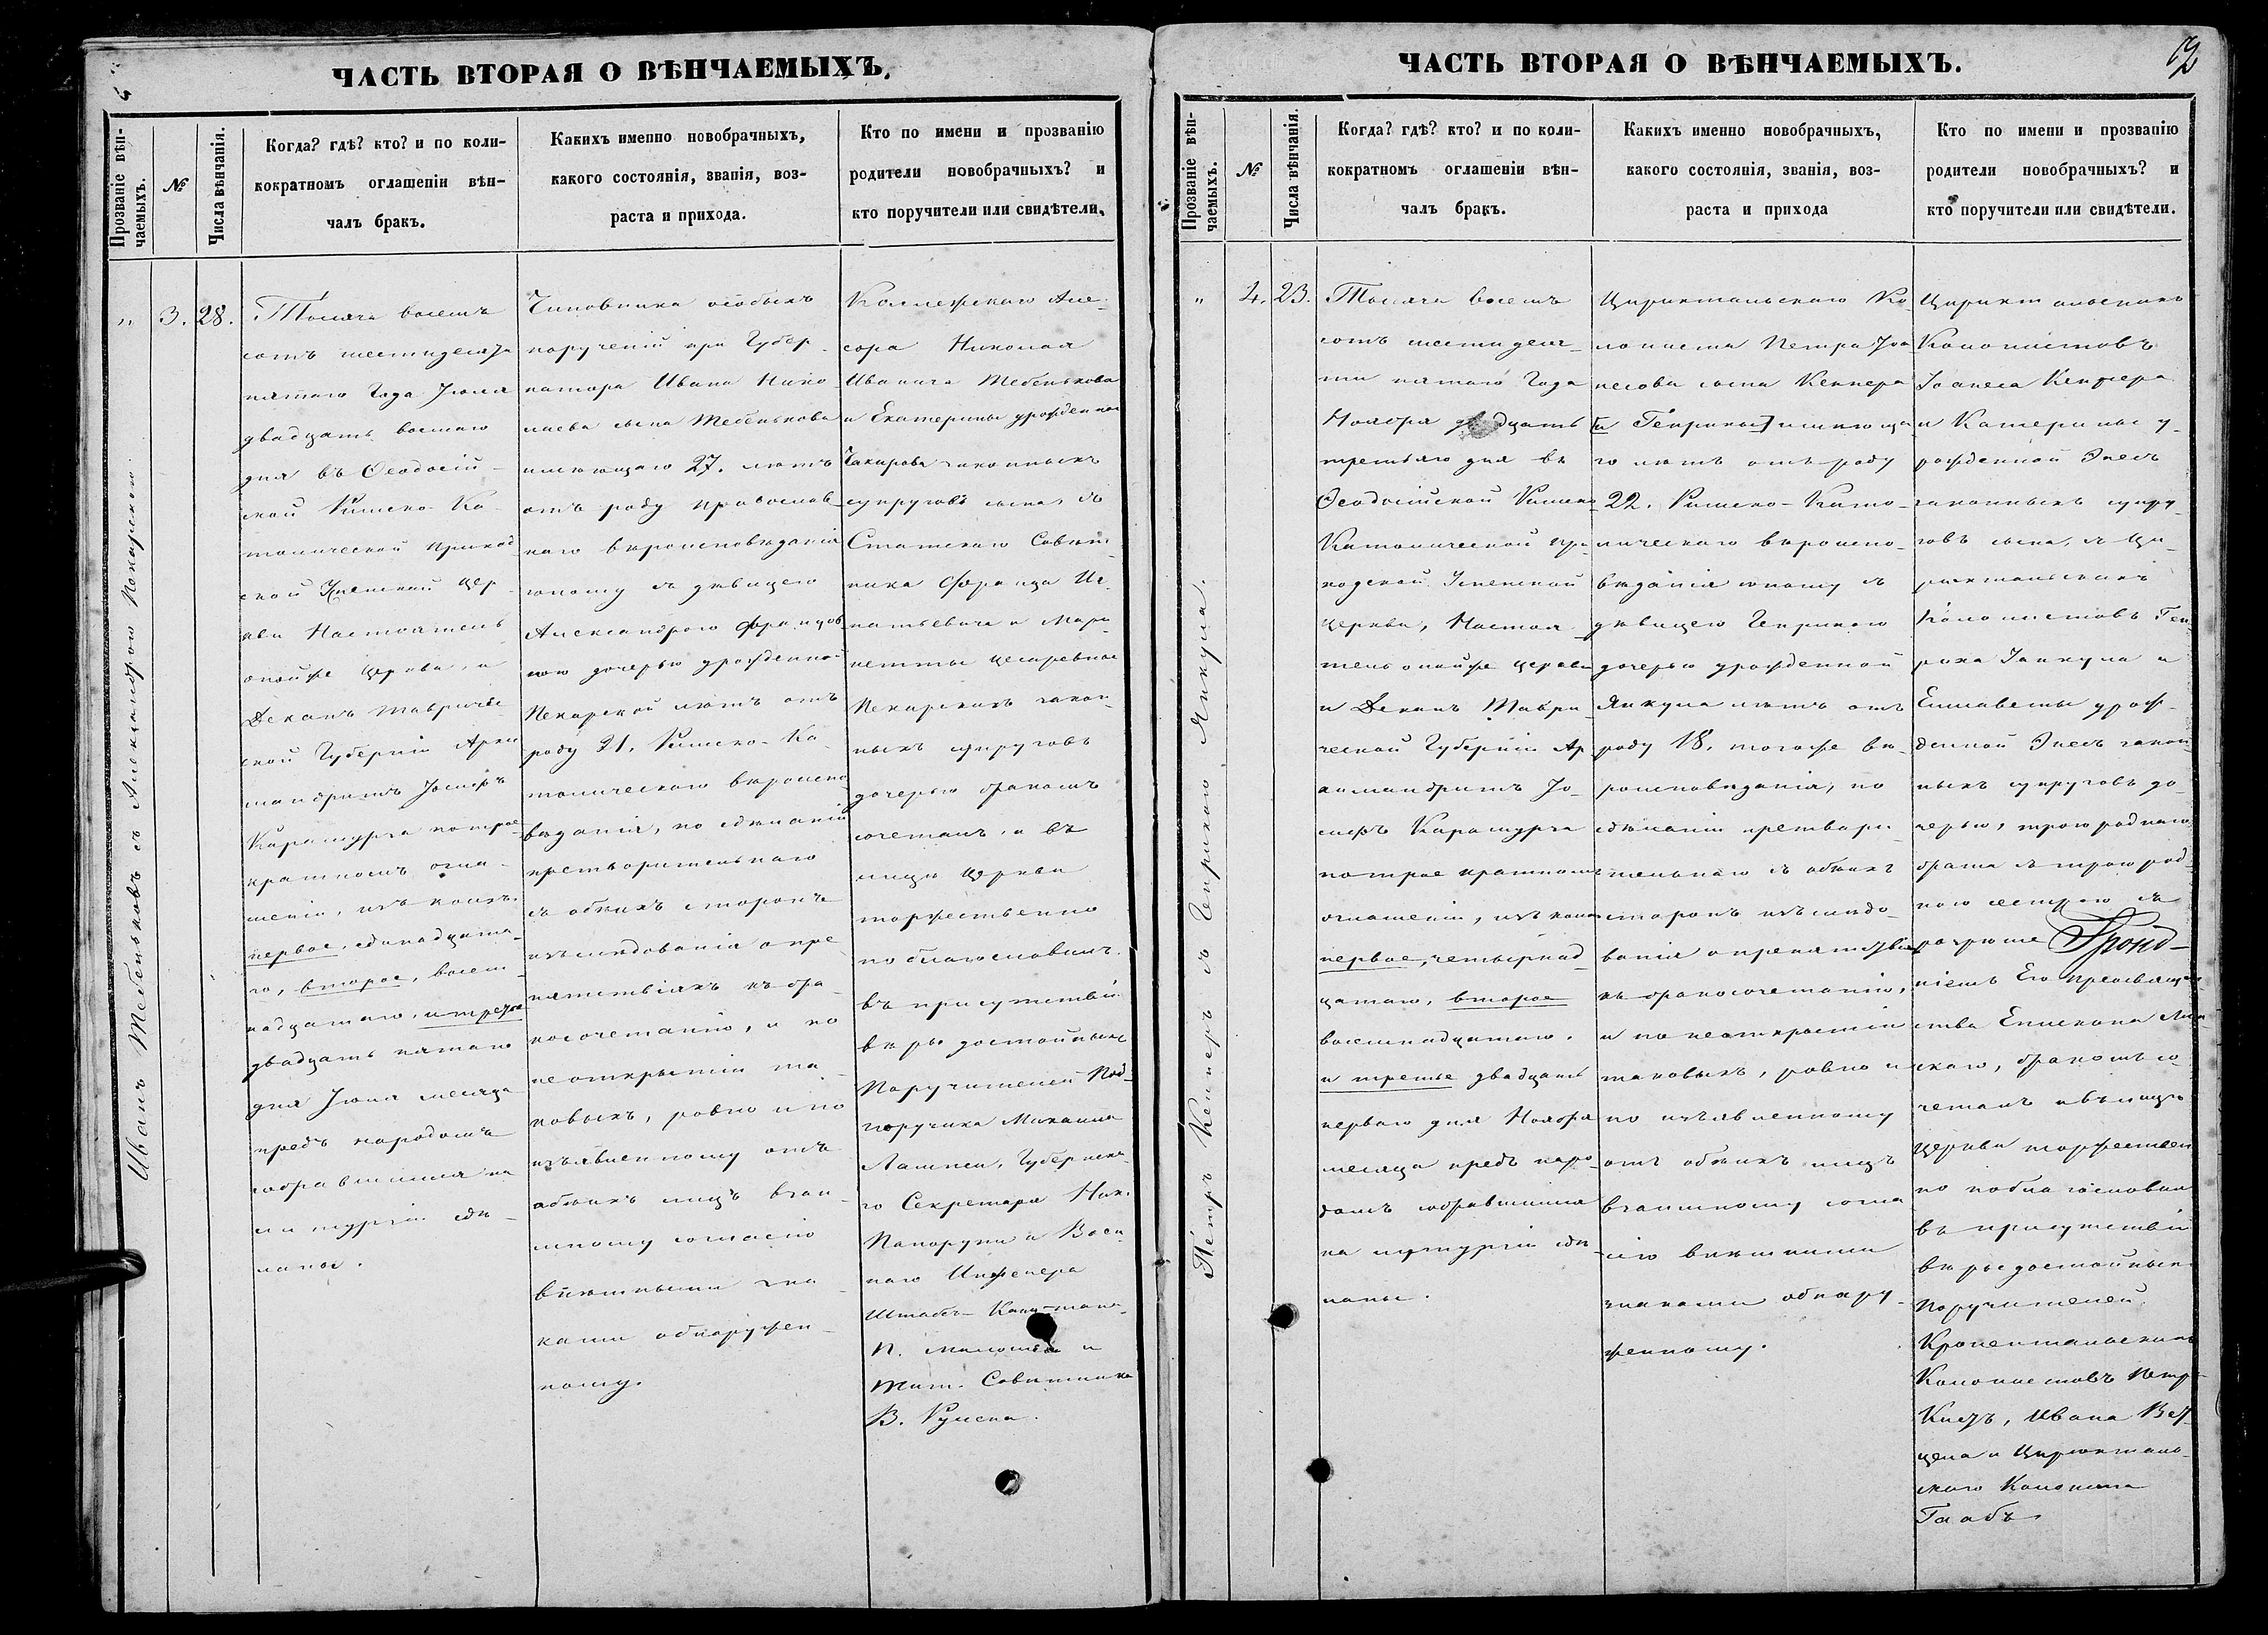 ЧАСТЬ ВТОРАЯ О ВѢНЧАЕМЫХЪ.
Прозваніе вѣн-
чаемыхъ.
№
Числа вѣнчанія.
Когда? гдѣ? кто? и по коли-
кократномъ оглашеніи вѣн-
чалъ бракъ.
Какихъ именно новобрачныхъ,
какого состоянія, званія, воз-
раста и прихода.
Кто по имени и прозванію
родители новобрачныхъ? и
кто поручители или свидѣтели.
Иванъ Тебеньковъ съ Александрою Пекарскою.
„ 3. 28.
Тысяча восемь
сотъ шестидесять
пятаго Года Іюля
двадцать восьмаго
дня въ Ѳеодосій-
ской Римско-Ка-
толической приход-
ской Успенской Цер-
кви Настоятель
онойже церкви, и
Деканъ Тавриче-
ской Губерніи Архи-
мандритъ Іосифъ
Карагиурга потрое-
кратномъ огла-
шеніи, изъ коихъ
первое, одинадцата-
го, второе, восем-
надцатаго, и третье
двадцать пятаго
дня Іюля месяца
предъ народомъ
собравшимся на
литургіи сдѣ-
ланы.
Чиновника особыхъ
порученій при Губер-
натора Ивана Нико-
лаева сына Тебенькова
имеющаго 27. лѣтъ
отъ роду православ-
наго вѣроисповѣданія
юношу съ дѣвицею
Александрою Францов-
ною дочерью урожденной
Пекарской лѣтъ отъ
роду 21, Римско-Ка-
толическаго вѣроиспо-
вѣданія, по сдѣланіи
претворительнаго
съ обѣихъ сторонъ
изслѣдованія о пре-
пятствіяхъ къ бра-
косочетанію, и по
неоткрытіи та-
ковыхъ, ровно и по
изъявленному отъ
обѣихъ лицъ взаи-
мному согласію
внѣшными зна-
ками обнаружен-
ному.
Коллежскаго Асе-
сора Николая
Иванича Тебенькова
и Екатерины урожденной
законныхъ
супруговъ сына, съ
Статскаго Совѣт-
ника Франца Иг-
натьевича и Мари-
Пекарскихъ закон-
ныхъ супруговъ
дочерью бракомъ
сочеталъ, и въ
лицѣ Церкви
торжественно
поблагословилъ
въ присутствіи
вѣры достойныхъ
Поручителей Под-
поручика Михаила
Лампси, Губернска-
го Секретаря Ник.
Папорупи и Воен-
наго Инженера
Штабъ-Капитана
П. и
Тит. Совѣтника
В.
ЧАСТЬ ВТОРАЯ О ВѢНЧАЕМЫХЪ.
12
Прозваніе вѣн-
чаемыхъ.
№
Числа вѣнчанія.
Когда? гдѣ? кто? и по коли-
кократномъ оглашеніи вѣн-
чалъ бракъ.
Какихъ именно новобрачныхъ,
какого состоянія, званія, воз-
раста и прихода
Кто по имени и прозванію
родители новобрачныхъ? и
кто поручители или свидѣтели.
Петръ Кепперъ съ Генрикою Янкула.
„ 4. 23.
Тысяча восемь
сотъ шестидеся-
ти пятаго Года
Ноября двадцать
третьяго дня въ
Ѳеодосійской Римско
Католической при-
ходской Успенской
церкви, Настоя-
тель онойже церкви
и Деканъ Таври-
ческой Губерніи Ар-
химандритъ Іо-
сифъ Карагиурга
потрое кратномъ
оглашеніи, изъ коихъ
первое, четырнад-
цатаго, второе
восемнадцатаго,
и третье двадцать
перваго дня Ноября
месяца предъ наро-
домъ собравшимся
на литургіи сдѣ-
ланы.
Цирихтальскаго Ко-
лониста Петра Іоа
несова сына Кеппера
[и Генрики] имеюща-
го лѣтъ отъ роду
22. Римско-Като-
лическаго вѣроиспо-
вѣданія юношу съ
дѣвицею Генрикою
дочерью урожденной
Янкула лѣтъ отъ
роду 18, тогоже вѣ-
роисповѣданія, по
сдѣланіи претвори-
тельнаго съ обѣихъ
сторонъ изъслѣдо-
ванія о препятствіяхъ
къ бракосочетанію,
и по неоткрытіи
таковыхъ, ровно и
по изъявленному
отъ обѣихъ лицъ
взаимному согла
сію внѣшними
знаками обнару-
женному.
Цирихтальскихъ
Колонистовъ
Іоанеса Кеппера
и Катерины у-
рожденной
законныхъ супру-
говъ сына, съ Ци-
рихтальскихъ
Колонистовъ Ген-
риха Янкула и
Елисаветы урож-
денной закон
ныхъ супруговъ до-
черью, троюроднаго
брата съ троюрод-
ною сестрою съ
разрѣше-
ніемъ Его Преосвящен
ства Епископа
скаго, бракомъ со-
четалъ и въ лицѣ
Церкви торжествен
но поблагословилъ
въ присутствіи
вѣры достойныхъ
Поручителей,
Кронентальскихъ
Колонистовъ Петра
Ивана
и Цирихталь-
скаго Колониста